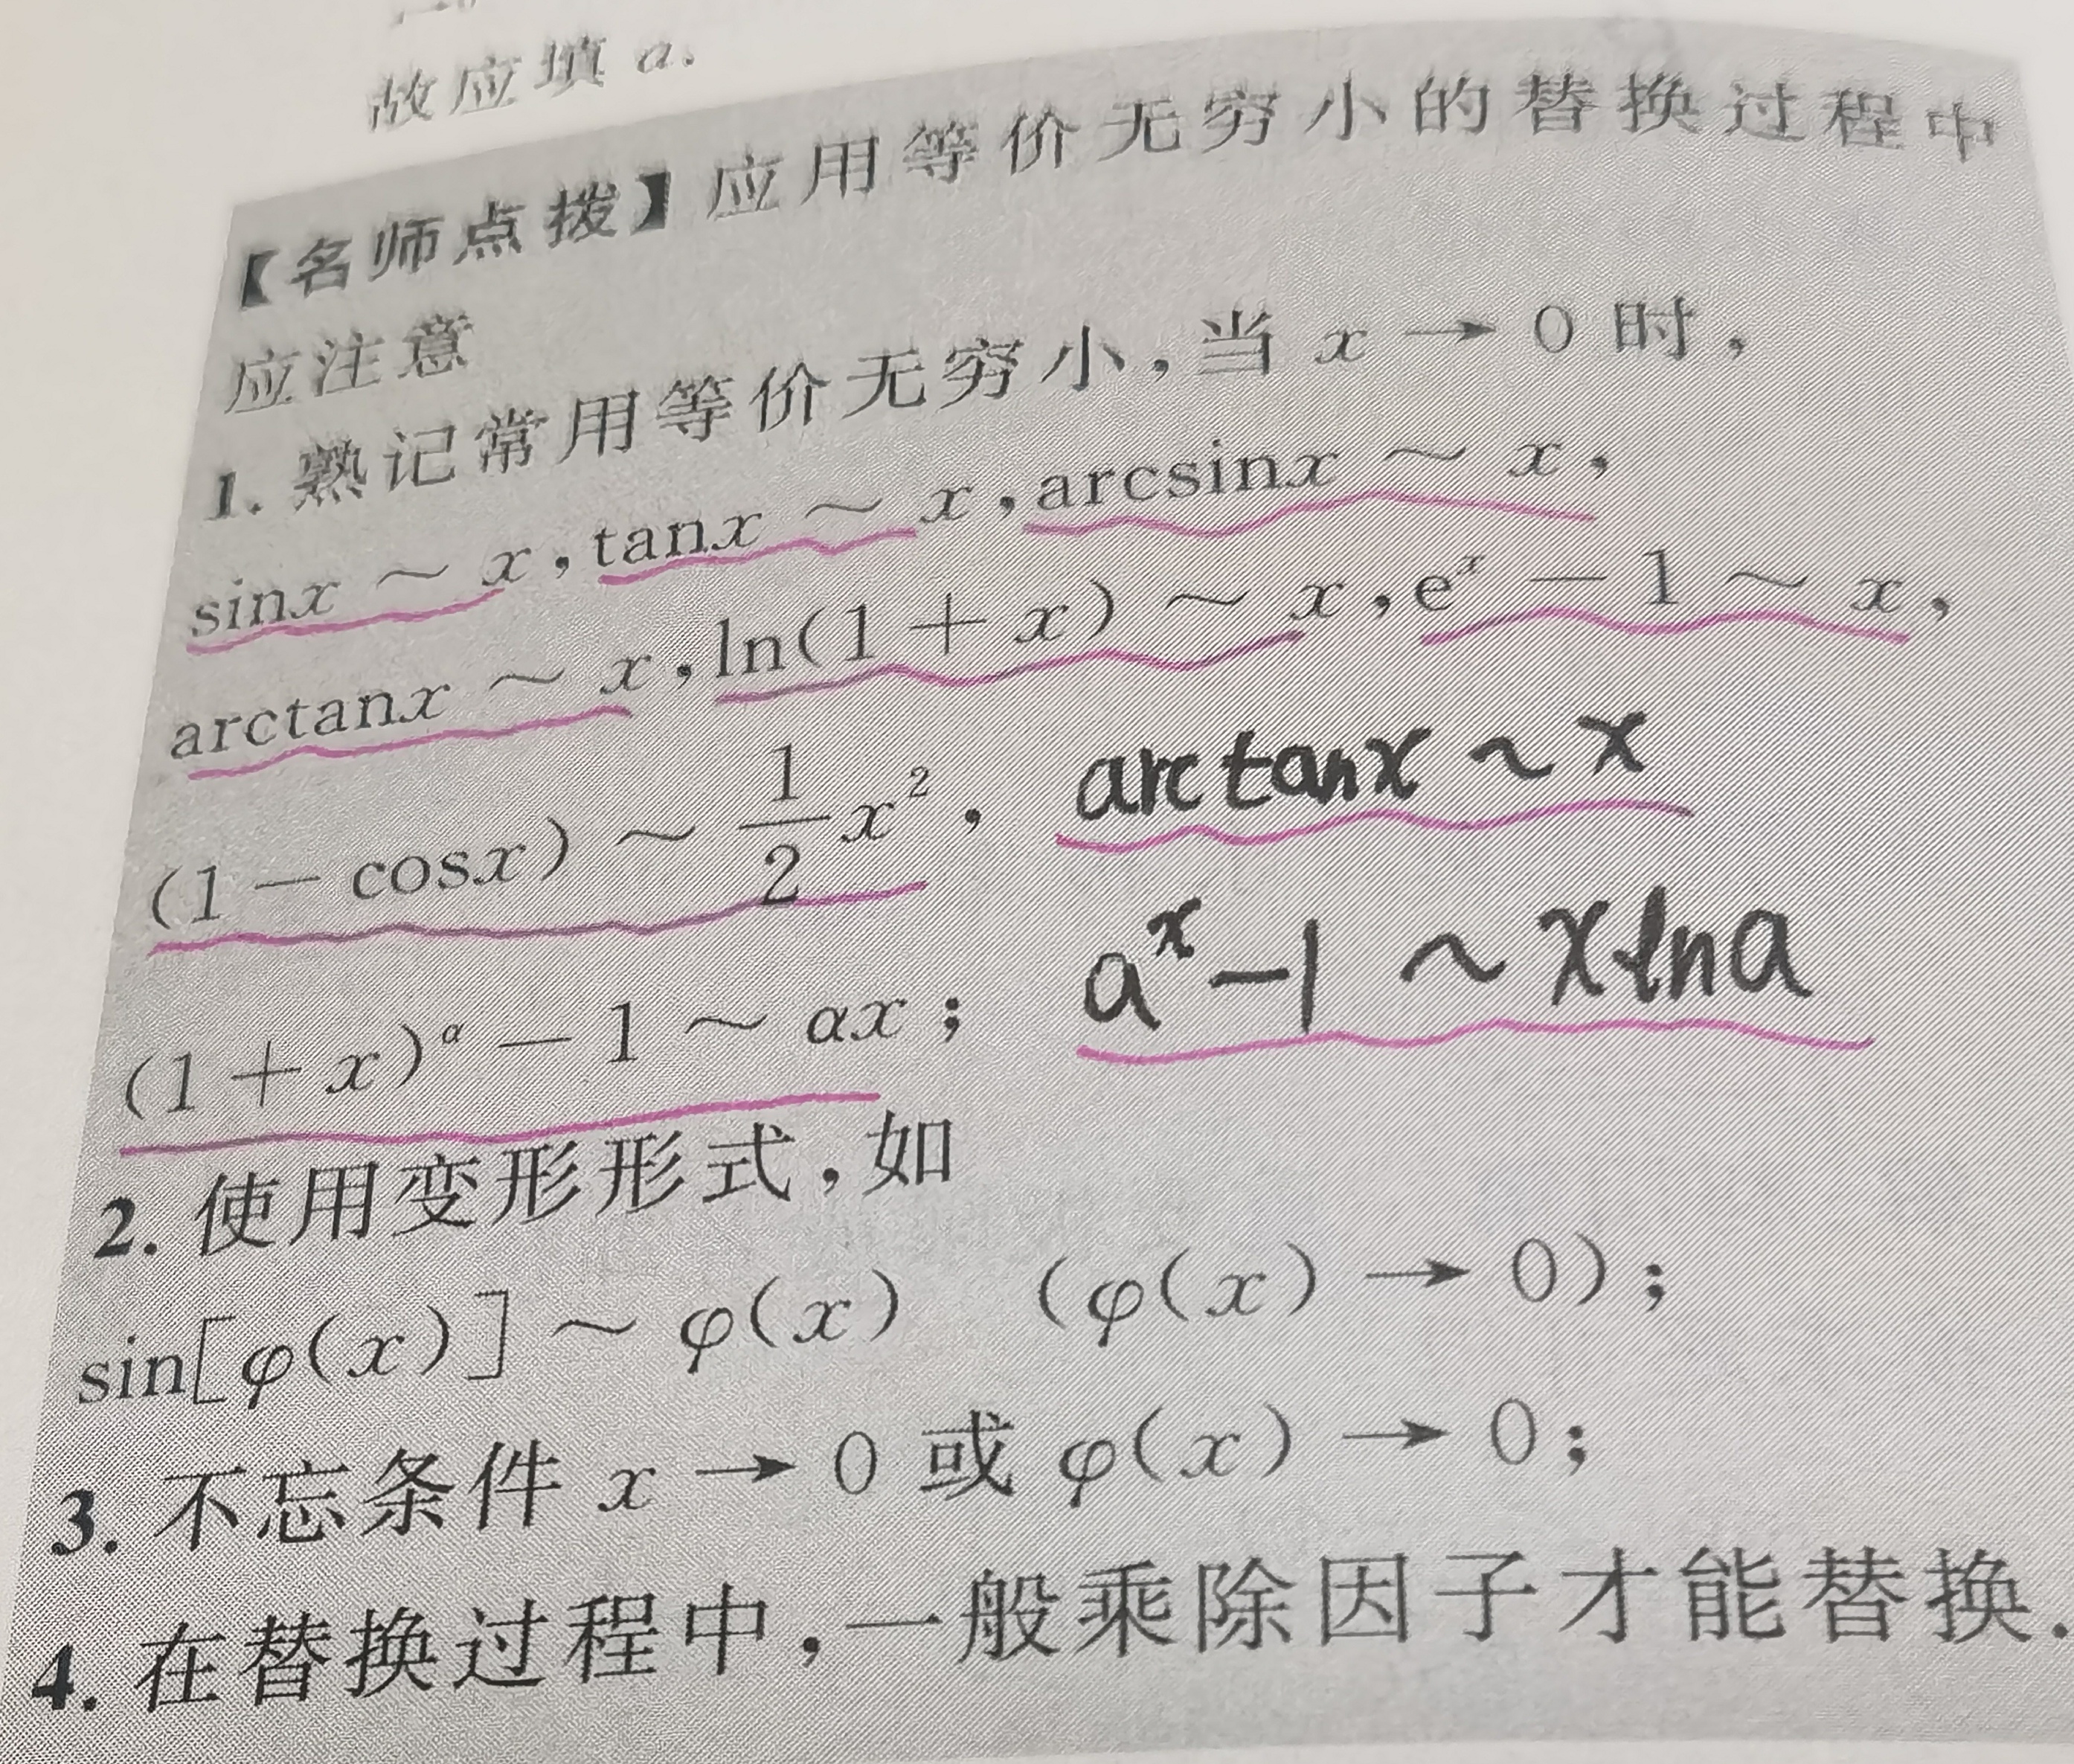 故应填 a.
【名师点拨】应用等价无穷小的替换过程中
应注意
1. 熟记常用等价无穷小,当 x → 0 时,
sinx ~ x, tanx ~ x, arcsinx ~ x,
arctanx ~ x, ln(1 + x) ~ x, eˣ − 1 ~ x,
(1 − cosx) ~ 1/2 x², arctanx ~ x
(1 + x)^α − 1 ~ αx; aˣ − 1 ~ xlna
2. 使用变形形式,如
sin[φ(x)] ~ φ(x) (φ(x) → 0);
3. 不忘条件 x → 0 或 φ(x) → 0;
4. 在替换过程中,一般乘除因子才能替换.